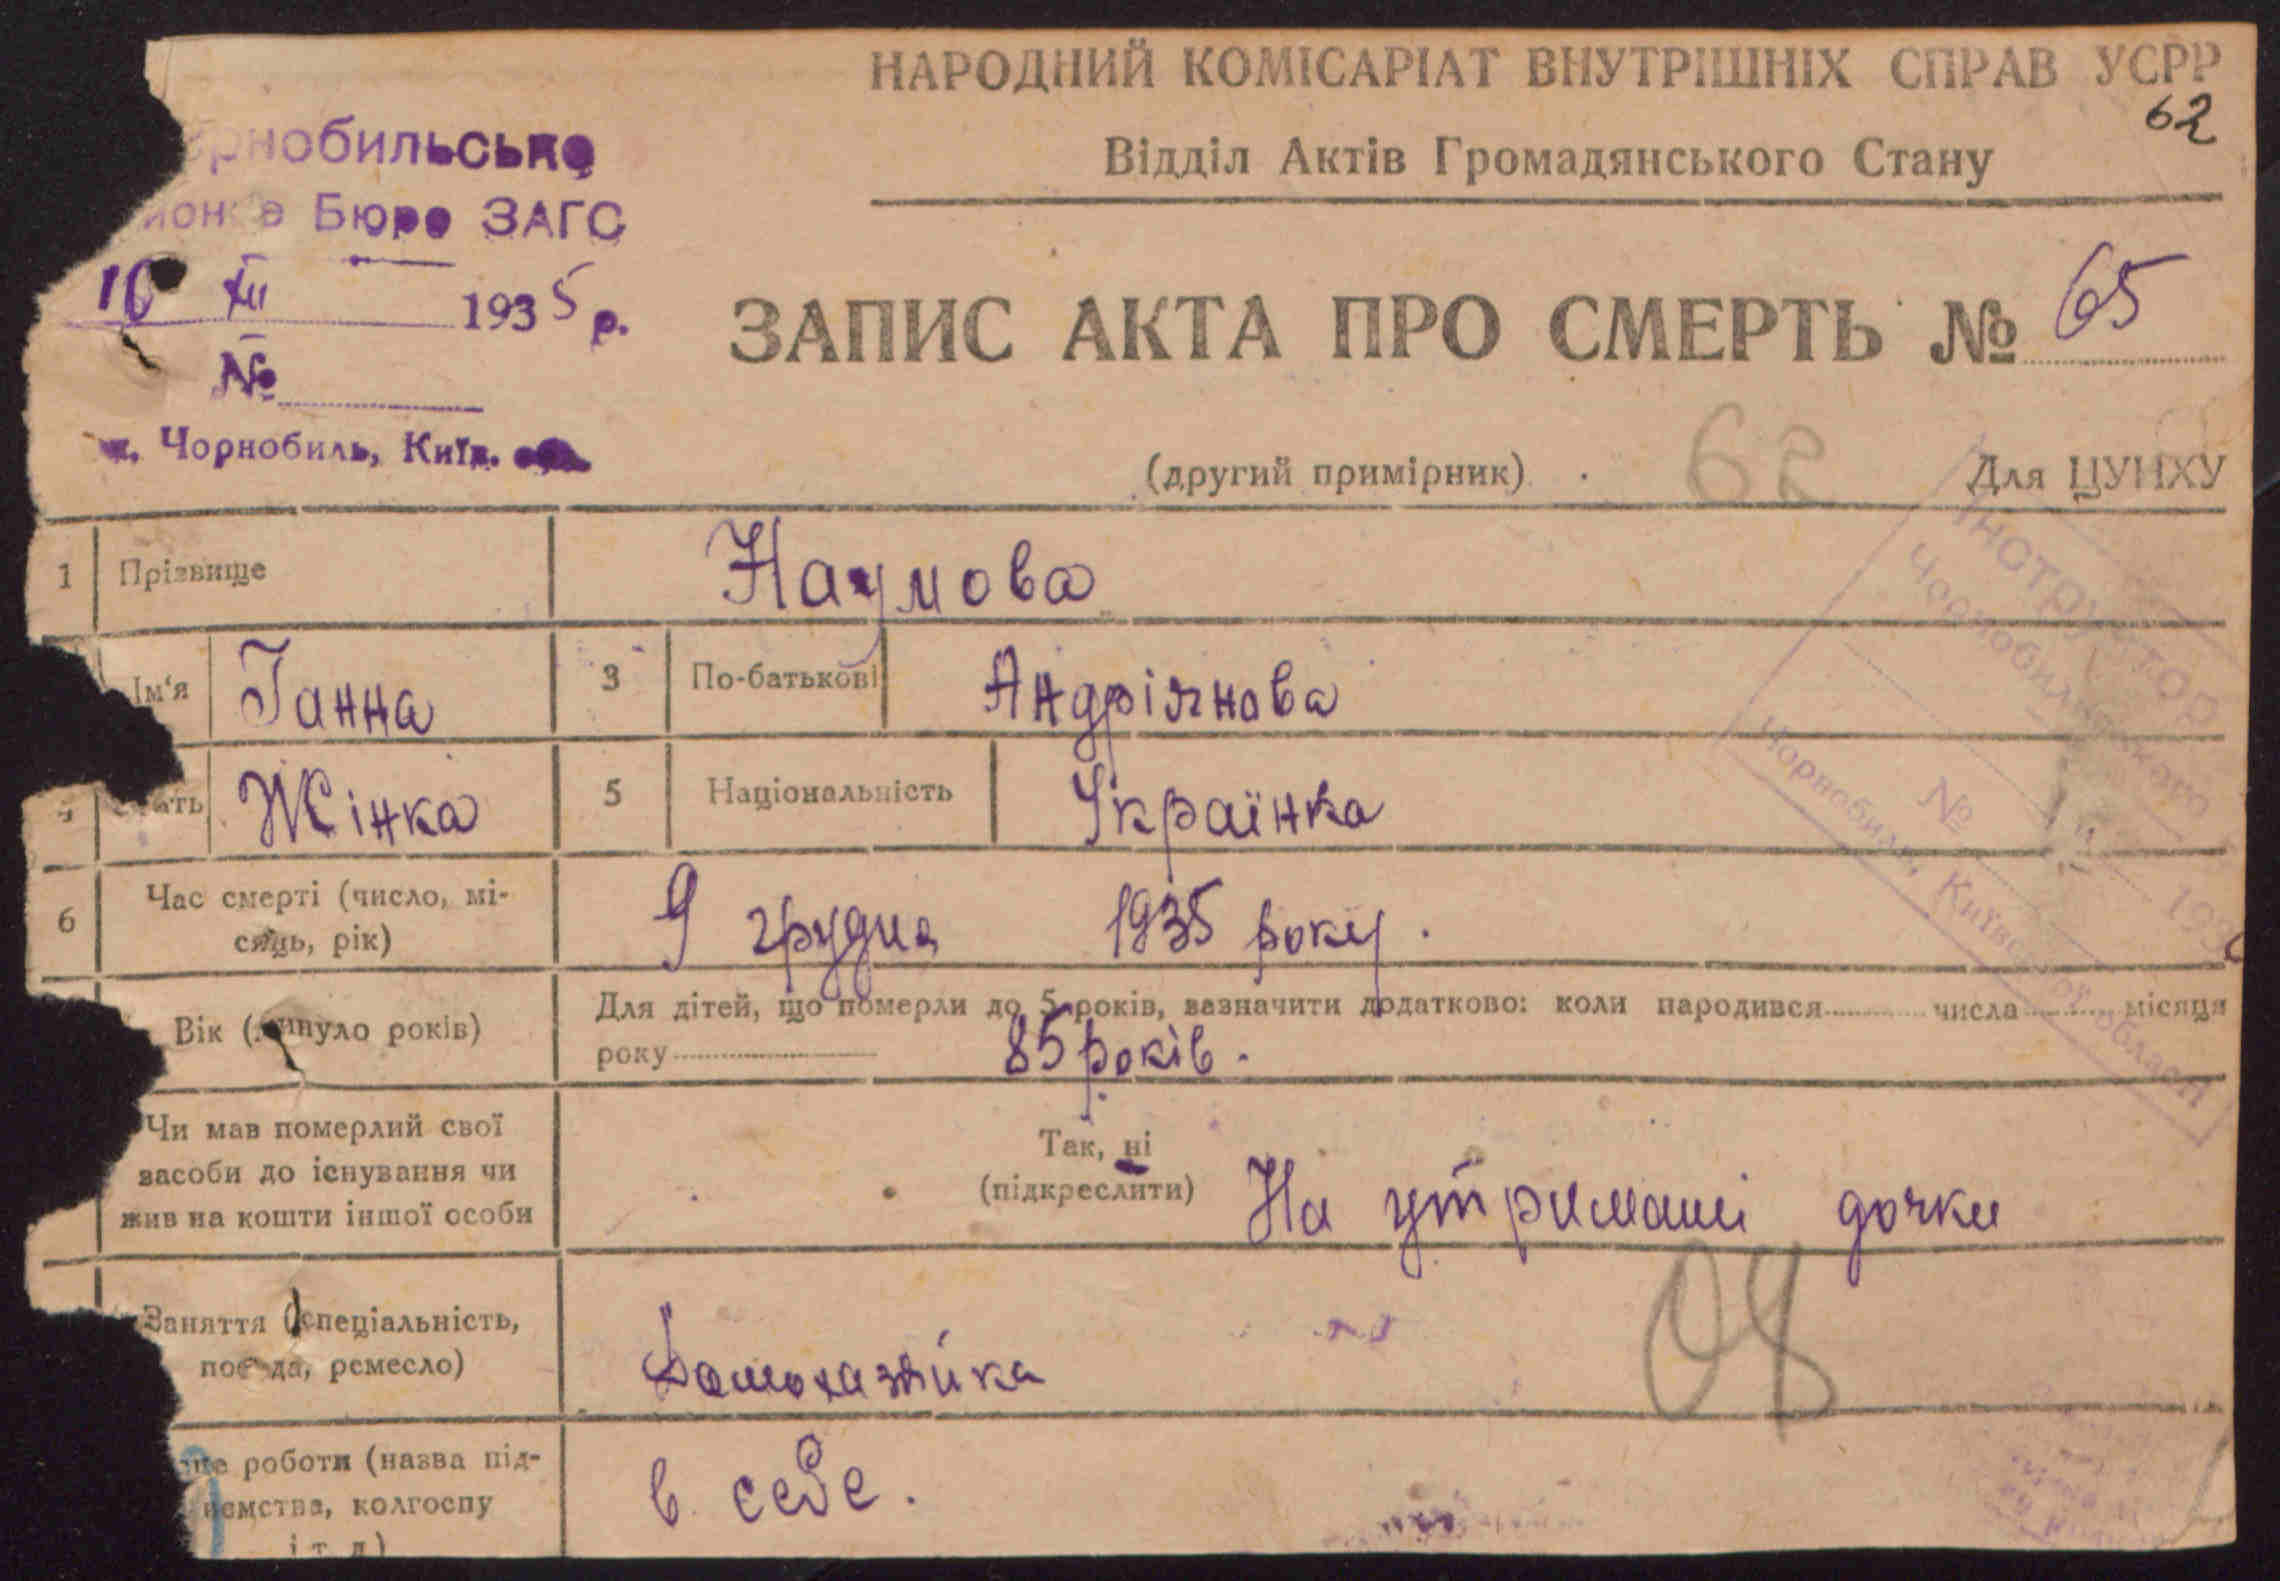 НАРОДНИЙ КОМІСАРІАТ ВНУТРІШНІХ СПРАВ УСРР
62
Відділ Актів Громадянського Стану
рнобильське
йон е Бюро ЗАГС
10 XII 1935 р.
№
м. Чорнобиль, Київ.
ЗАПИС АКТА ПРО СМЕРТЬ № 65
(другий примірник) 62 Для ЦУНХУ
Інструктор
Чорнобильського
№
193
Чорнобиль, Київської області
1 Прізвище Наумова
Ім'я Ганна 3 По-батькові Андріянова
ать Жінка 5 Національність Українка
6 Час смерті (число, мі-
сяць, рік) 9 грудня 1935 року.
Вік (минуло років) Для дітей, що померли до 5 років, зазначити додатково: коли народився числа місяця
року 85 років.
Чи мав померлий свої
засоби до існування чи
жив на кошти іншої особи
Так, ні
(підкреслити) На утримані дочки
Заняття (спеціальність,
посада, ремесло) Домохазяйка
08
це роботи (назва під-
иємства, колгоспу
і т. д.) в себе.